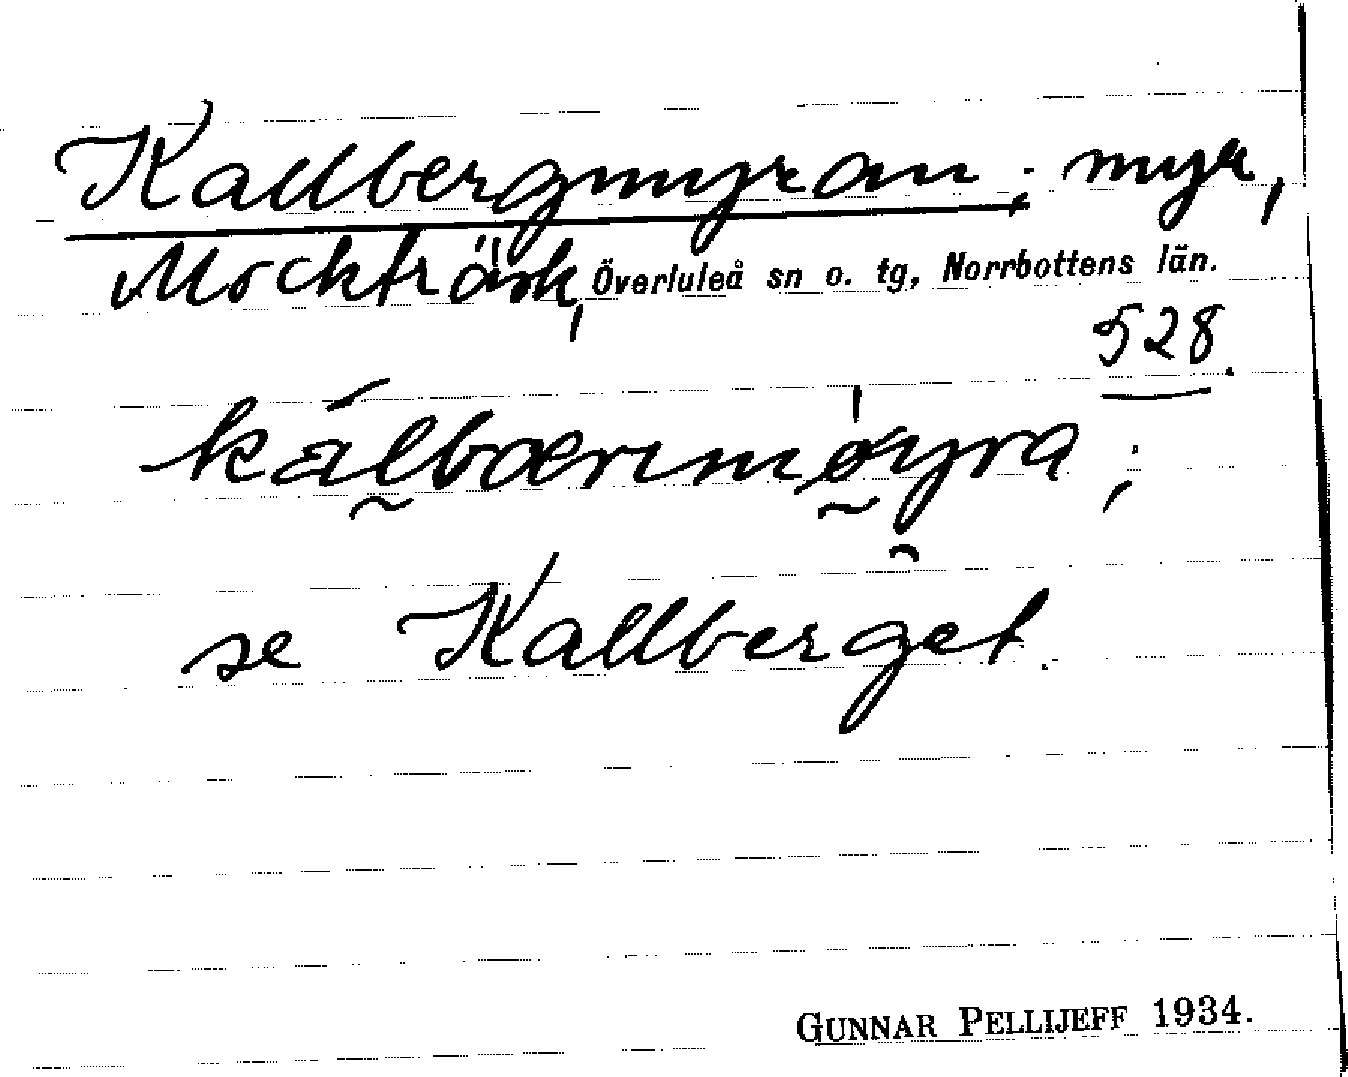 Kallbergmyran; myr,
Mockträsk, Överluleå sn o. tg, Norrbottens län.
528.
kálbærmøyra;
se Kallberget.
GUNNAR PELLIJEFF 1934.